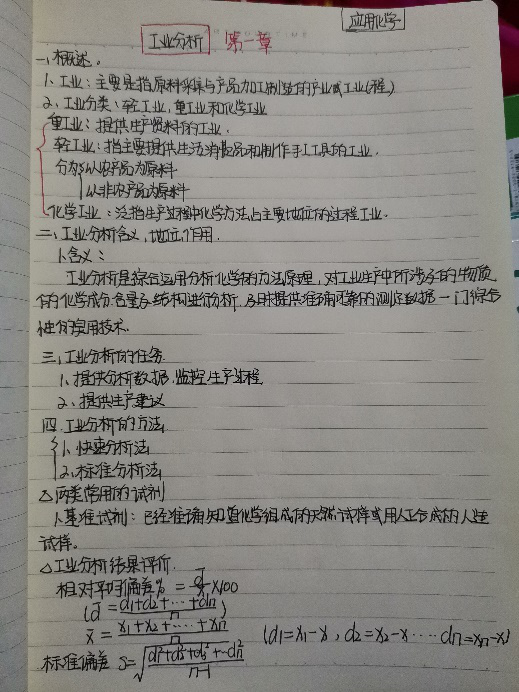 应用化学
工业分析 第一章
一、概述。
1、工业：主要是指原料采集与产品加工制造的产业或工业(程)
2、工业分类：轻工业,重工业和化学工业
重工业：提供生产资料的工业.
轻工业：指主要提供生活消费品和制作手工工具的工业.
分为以农产品为原料
以非农产品为原料
化学工业：泛指生产过程中化学方法占主要地位的过程工业.
二、工业分析含义,地位,作用.
1、含义：
工业分析是综合运用分析化学的方法原理，对工业生产中所涉及的物质
的化学成分.含量及结构进行分析.及时提供准确可靠的测定数据一门综合
性的实用技术.
三、工业分析的任务
1、提供分析数据.监控生产过程
2、提供生产建议
四.工业分析的方法
1、快速分析法
2、标准分析法
△两类常用的试剂
1、基准试剂：已经准确知道化学组成的天然试样或用人工合成的人造
试样。
△工业分析结果评价.
相对平均偏差% = d̄/x̄ ×100
(d̄ = (d1+d2+…+dn)/n)
x̄ = (x1+x2+…+xn)/n (d1=x1-x, d2=x2-x ⋯⋯ dn=xn-x)
标准偏差 S=√((d₁²+d₂²+d₃²+…dn²)/(n-1))